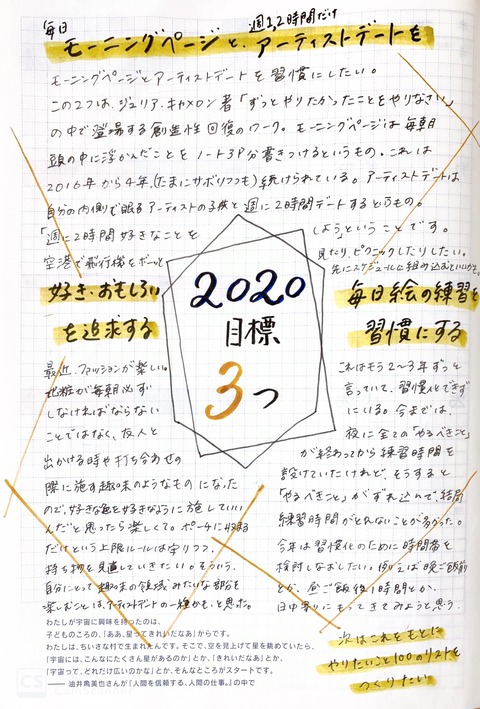 毎日
週1,2時間だけ
モーニングページと、アーティストデートを
モーニングページとアーティストデートを習慣にしたい。
この2つは、ジュリア・キャメロン著「ずっとやりたかったことをやりなさい」
の中で登場する創造性回復のワーク。モーニングページは毎朝
頭の中に浮かんだことをノート3P分書きつけるというもの。これは
2016年から4年、(たまにサボりつつも)続けられている。アーティストデートは
自分の内側で眠るアーティストの子供と週に2時間デートするというもの。
「週に2時間好きなことを
しようということです。
空港で飛行機をボーっと
見たり、ピクニックしたりしたい。
先にスケジュールに組み込むといいかも。
好き・おもしろい
を追求する
2020
目標
3つ
毎日絵の練習を
習慣にする
最近、ファッションが楽しい。
化粧が毎朝必ず
しなければならない
ことではなく、友人と
出かける時や打ち合わせの
際に施す趣味のようなものになった
ので、好きな色を好きなように施していい
んだと思ったら楽しくて。ポーチに収まる
だけという上限ルールは守りつつ、
持ち物を見直していきたい。そういう、
自分にとって趣味の領域みたいな部分を
楽しむことは、アーティストデートの一種かも、と思った。
これはもう2〜3年ずっと
言っていて、習慣化できず
にいる。今までは、
夜に全ての「やるべきこと」
が終わってから練習時間を
設けていたけれど、そうすると
「やるべきこと」がずれ込んで、結局
練習時間がとれないことが多かった。
今年は習慣化のために時間帯を
検討しなおしたい。例えば晩ご飯前
とか、昼ご飯後1時間とか、
日中寄りにもってきてみようと思う。
わたしが宇宙に興味を持ったのは、
子どものころの、「ああ、星ってきれいだなあ」からです。
わたしは、ちいさな村で生まれたんです。そこで、空を見上げて星を眺めていたら、
「宇宙には、こんなにたくさん星があるのか」とか、「きれいだなあ」とか、
「宇宙って、どれだけ広いのかな」とか、そんなところがスタートです。
―― 油井亀美也さんが『人間を信頼する、人間の仕事。』の中で
次はこれをもとに
やりたいこと100のリストを
つくりたい。